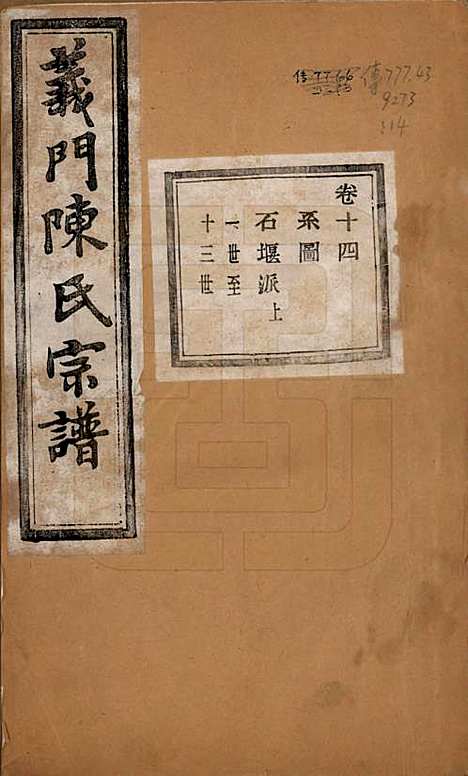 義門陳氏宗譜
卷十四
系圖
石堰派上
一世至
十三世
傳777.43
9273
:14